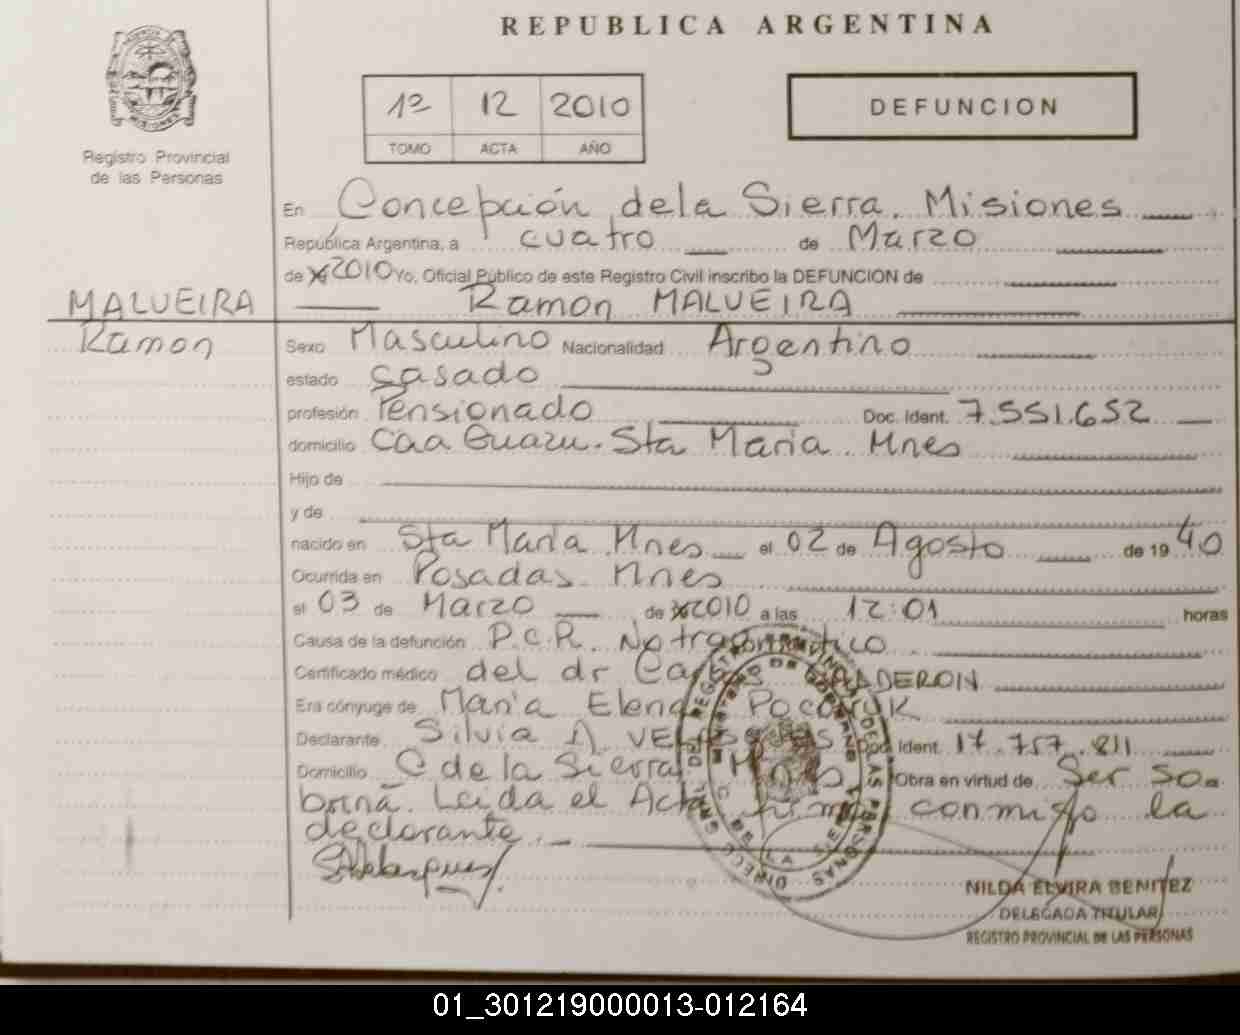 REPUBLICA ARGENTINA
Registro Provincial
de las Personas
1º 12 2010
TOMO ACTA AÑO
DEFUNCION
En Concepción de la Sierra. Misiones
República Argentina, a cuatro de Marzo
de 2010 Yo, Oficial Público de este Registro Civil inscribo la DEFUNCION de
MALUEIRA
Ramon MALUEIRA
Ramon
Sexo Masculino Nacionalidad Argentino
estado Casado
profesión Pensionado Doc. Ident. 7.551.652
domicilio Caa Guazu. Sta Maria. Mnes
Hijo de
y de
nacido en Sta Maria Mnes el 02 de Agosto de 1940
Ocurrida en Posadas Mnes
el 03 de Marzo de 2010 a las 12:01 horas
Causa de la defunción P.C.R. No traumatico
Certificado médico del dr Carlos CALDERON
Era cónyuge de Maria Elena
Declarante Silvia A. Doc. Ident. 17.757.811
Domicilio C de la Sierra Mnes Obra en virtud de Ser so
brina. Leida el Acta firma conmigo la
declarante.
NILDA ELVIRA BENITEZ
DELEGADA TITULAR
REGISTRO PROVINCIAL DE LAS PERSONAS
01_301219000013-012164